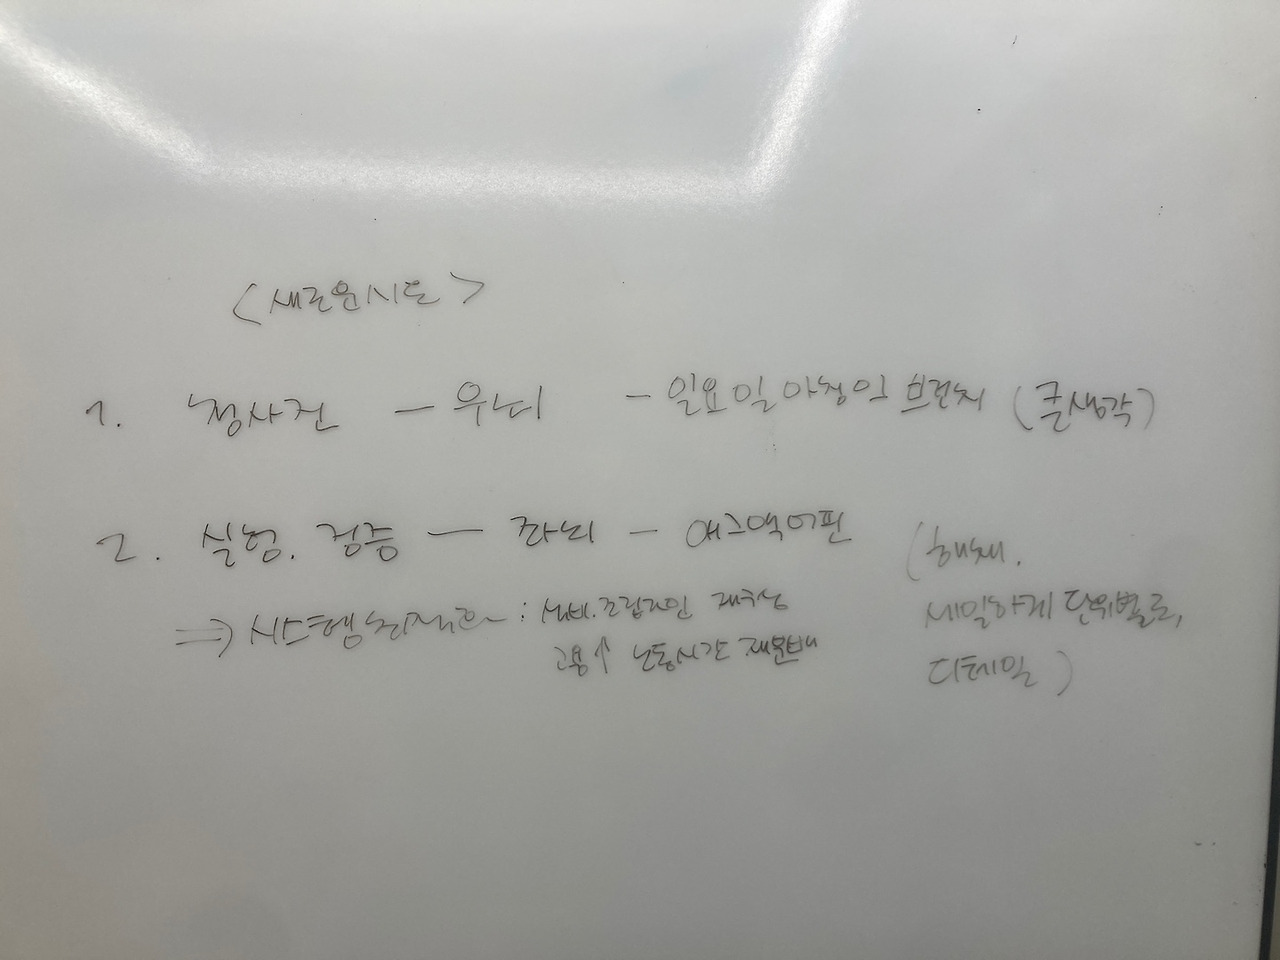 <새로운시도>
1. 청사진 - 우뇌 - 일요일 아침의 브런치 (큰생각)
2. 실험. 검증 - 좌뇌 - 애그역어핀 (해체.
⇒ 시스템최적화 : 설비.조립라인 재구성 세밀하게 단위별로,
고용↑ 노동시간 재분배 디테일)